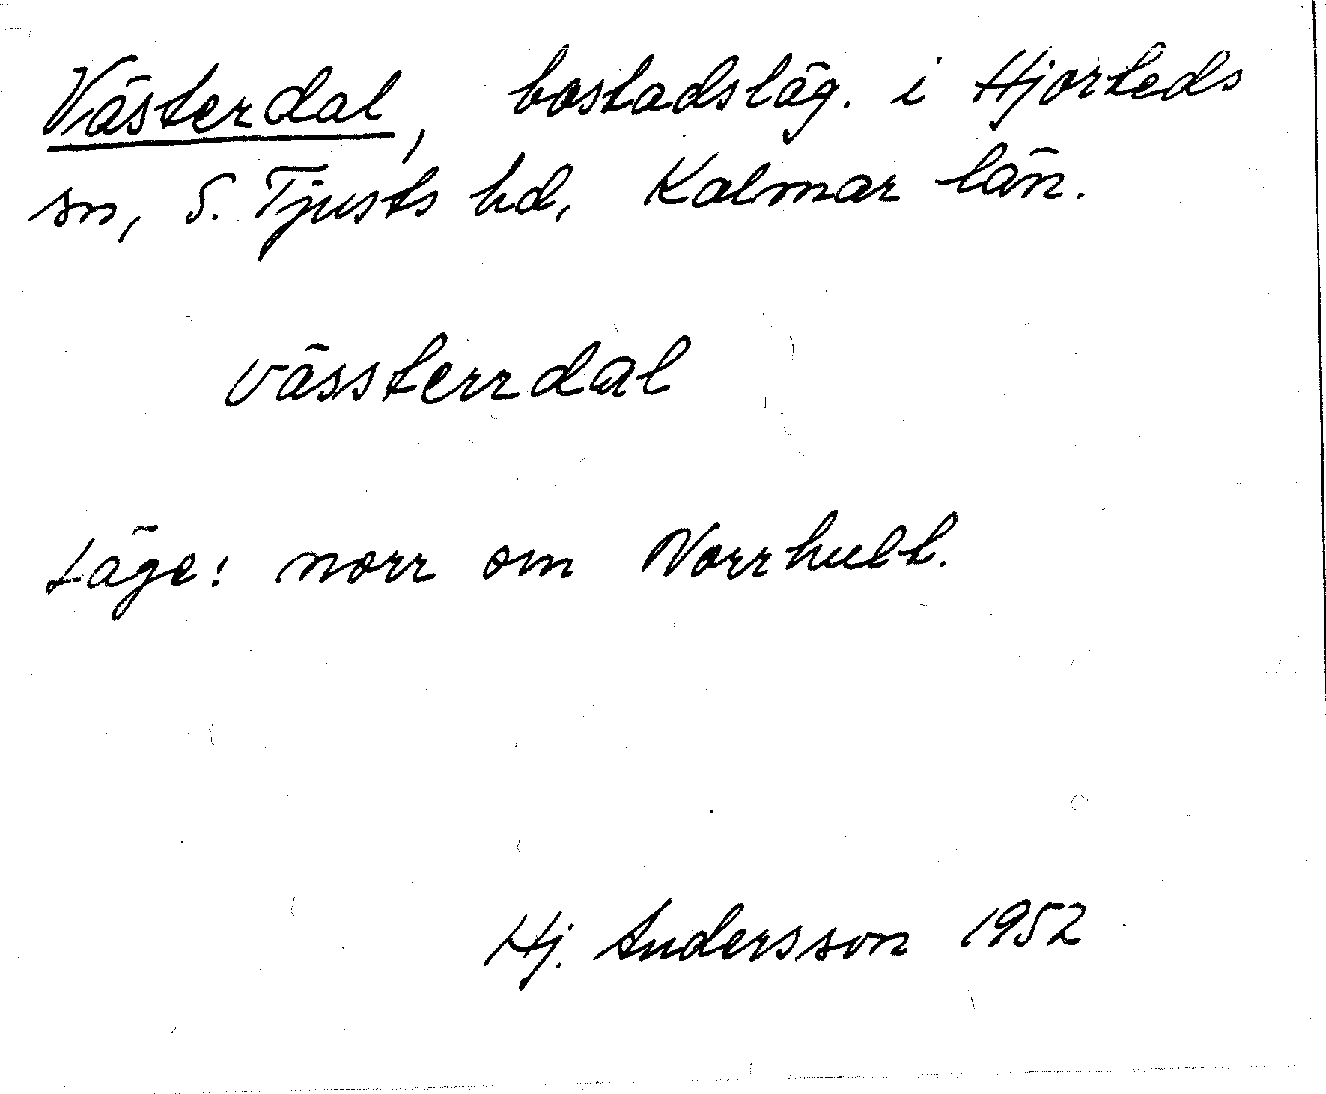 Västerdal, bostadsläg. i Hjorteds
sn, S. Tjusts hd, Kalmar län.
vässterrdal
Läge: norr om Norrhult.
Hj. Andersson 1952